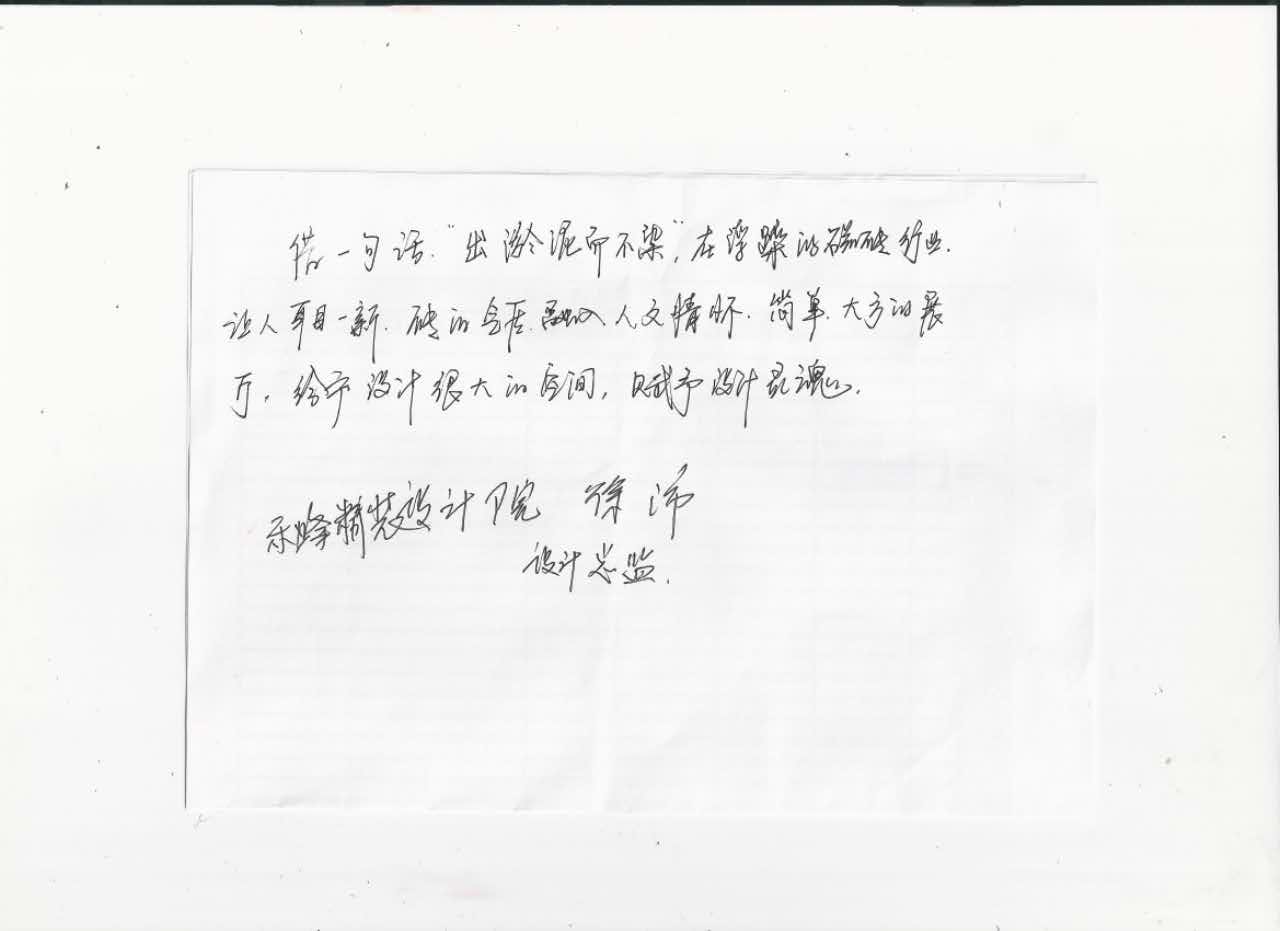 借一句话."出淤泥而不染",在浮躁的磁砖行业.
让人耳目一新.砖的仓店.融入人文情怀.简单.大方的展
厅.给予设计很大的空间,赋予设计灵魂.
峰精装设计院 徐沛
设计总监.